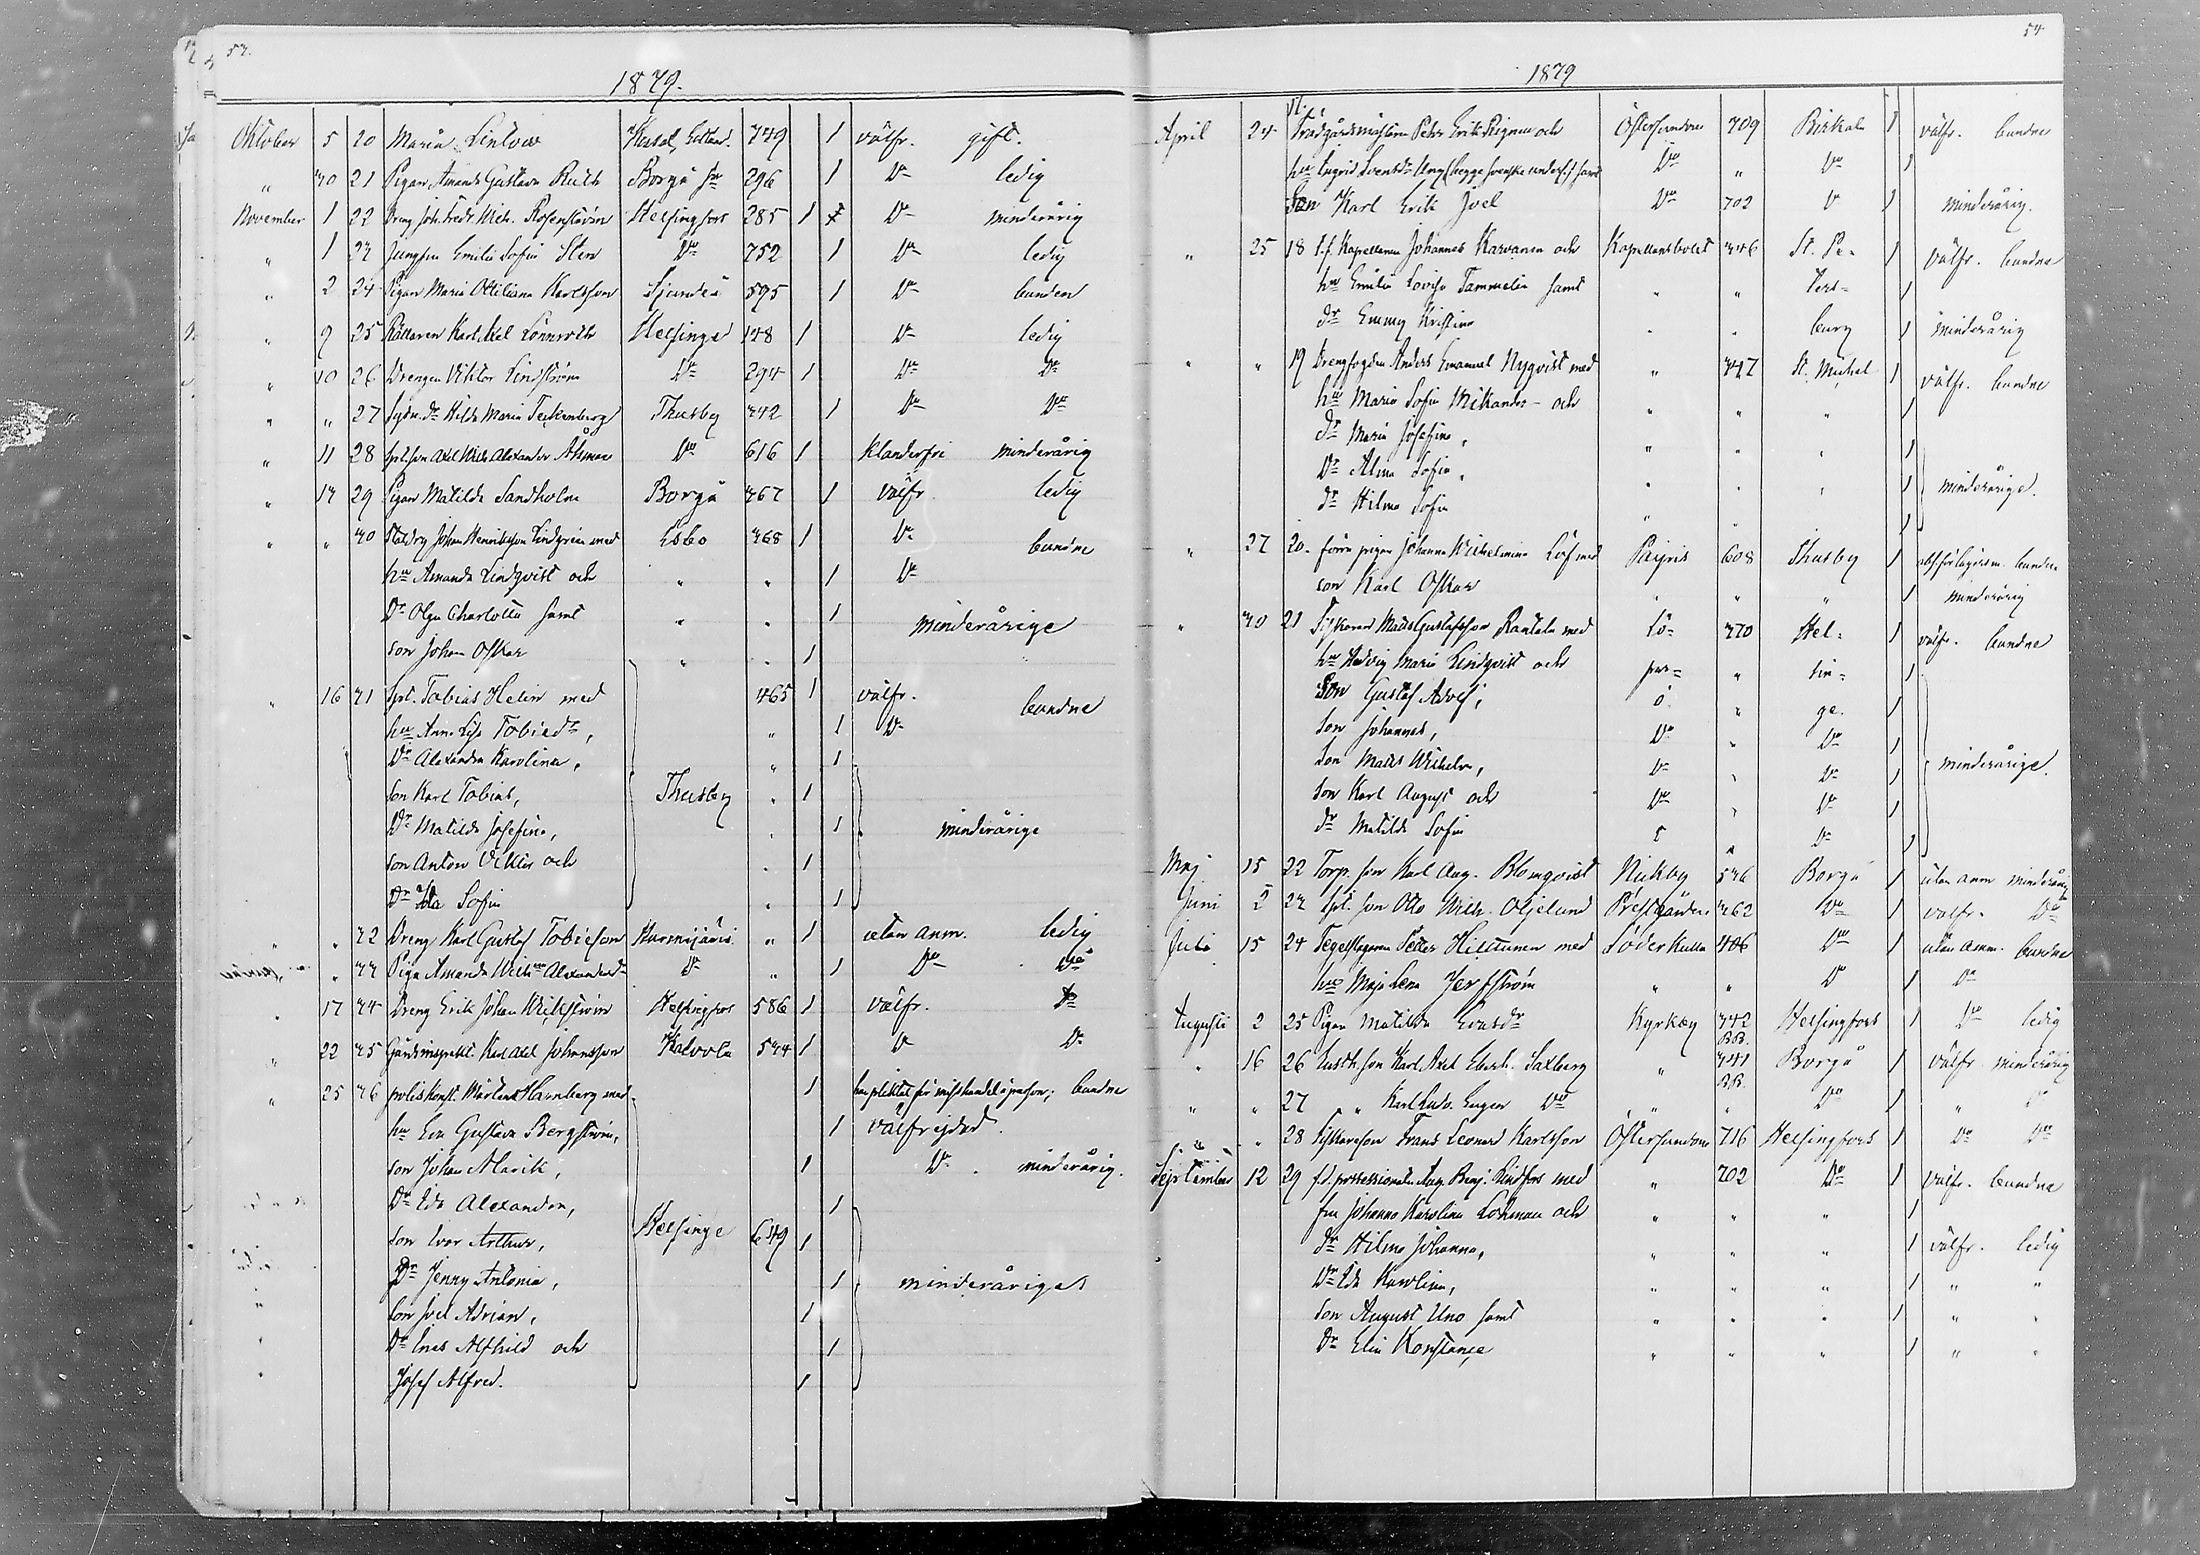 53.
1879.
Oktober 5 20 Maria Lintver 749 1 välfr. gift.
" 30 21 Pigan Amanda Gustava Ruth Borgå sn 296 1 Do ledig
November 1 22 Dreng Joh. Fredr. Wilh. Rosenström Helsingfors 285 1 Do minderårig
" 1 23 Jungfru Emilia Sofia Sten Do 752 1 Do ledig
" 2 24 Pigan Maria Ottiliana Karlsson Sjundeå 595 1 Do bunden
" 9 25 Rättaren Karl Axel Lönnroth Helsinge 148 1 Do ledig
" 10 26 Drengen Viktor Lindström Do 294 1 Do Do
" " 27 Sydw. Dr Hilda Maria Teckenberg Thusby 342 1 Do Do
" 11 28 Spl. son Axel Wilh. Alexander Åhman Do 616 1 klanderfri minderårig
" 13 29 Pigan Matilda Sandholm Borgå 367 1 välfr. ledig
" " 30 Johan Henriksson Lindgren med Esbo 368 1 Do bundne
hu Amanda Lindqvist och " " 1 Do
Dr Olga Charlotta samt " " 1 minderårige
son Johan Oskar " " 1
" 16 31 Spl. Tobias Helin med 465 1 välfr. bundne
hu Anna Lisa Tobiedr, " 1 Do
Dr Alexandra Karolina, " 1
son Karl Tobias, Thusby " 1
Dr Matilda Josefina, " 1 minderårige
son Anton Viktor och " 1
Dr Ida Sofia " 1
" " 32 Dreng Karl Gustaf Tobieson Nurmijärvi " 1 utan anm. ledig
" " 33 Piga Amanda Wilhna Alexandersdr Do " 1 Do Do
" 17 34 Dreng Erik Johan Wickström Helsingfors 586 1 välfr. Do
" 22 35 Gårdsinspekt. Karl Axel Johansson Kalvola 534 1 Do Do
" 25 36 poliskonst. Mårten Harnberg med 1 bundne
hu Eva Gustava Bergström, 1 välfrejdad
son Johan Alarik, 1 Do minderårig.
Dr Ida Alexandra, 1
son Ivar Arthur, Helsinge 649 1
Dr Jenny Antonia, 1 minderåriga
son Joel Adrian, 1
Dr Ines Alfhild och 1
Josef Alfred. 1
54
1879
April 24 Trädgårdsmästaren Petter Erik och Östersundom 709 Birkala 1 välfr. bundne
hu Ingrid Svensdr (begge svenske unders.) samt Do " Do 1
Son Karl Erik Joel Do 702 Do 1 minderårig.
" 25 18 t.f. Kapellanen Johannes Karvonen och Kapellansbolet 346 St. Pe- 1 välfr. bundne
hu Emilia Lovisa Tammelin samt " " ters- 1
dr Emmy Kristina " " burg 1 minderårig
" " 19 Drengfogden Anders Emanuel Nyqvist med " 347 St. Michel 1 välfr. bundne
hu Maria Sofia Mikander och " " " 1
dr Maria Josefina, " " " 1
Dr Alma Sofia, " " " 1 minderårige.
dr Hilma Sofia " " 1
" 27 20. förra pigan Johanna Wilhelmina Löf med Paipis 608 Thusby 1 bunden
son Karl Oskar " " " 1 minderårig
" 30 21 Fiskaren Matts Gustafsson Rantala med Lö- 370 Hel- 1 välfr. bundne
hu Hedvig Maria Lindqvist och par- " sin- 1
Son Gustaf Adolf, ö. " ge. 1
son Johannes, Do " Do 1
son Matts Wilhelm, Do " Do 1 minderårige.
son Karl August och Do " Do 1
dr Matilda Sofia " Do 1
Maj 15 22 Torp. son Karl Aug. Blomqvist Nickby 536 Borgå 1 utan anm minderårig
Juni 2 23 Spl. son Otto Wilh. Oljelund Prestgården 362 Do 1 välfr. Do
Juli 15 24 Tegelslagaren Petter Hiltunen med Söderkulla 406 Do 1 utan anm. bundne
hu Maja Lena Jerfström " " Do 1 Do
Augusti 2 25 Pigan Matilda Evasdr Kyrkby 342 BB. Helsingfors 1 Do ledig
" 16 26 Karl Axel Eberh. Saxberg " 341 BB. Borgå 1 välfr minderårig
" " 27 " " Karl Ludv. Eugen Do " " Do 1 " Do
" " 28 Fiskareson Frans Leonard Karlsson Östersundom 716 Helsingfors 1 Do Do
September 12 29 f.d. possessionaten Aug. Benj. Lindfors med " 702 Do 1 välfr. bundne
fru Johanna Karolina Lohman och " " " 1
dr Hilma Johanna, " " " 1 välfr. ledig
Dr Ida Karolina, " " " 1 " "
son August Uno samt " " " 1 " "
Dr Elin Konstance " " " 1 " "